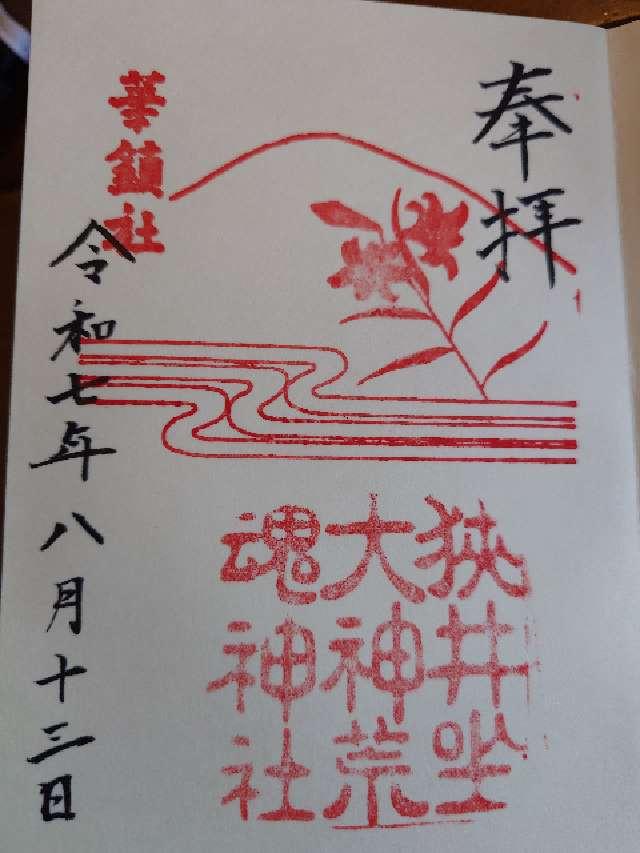 奉拝
狭井坐
大神荒
魂神社
華鎮社
令和七年八月十三日